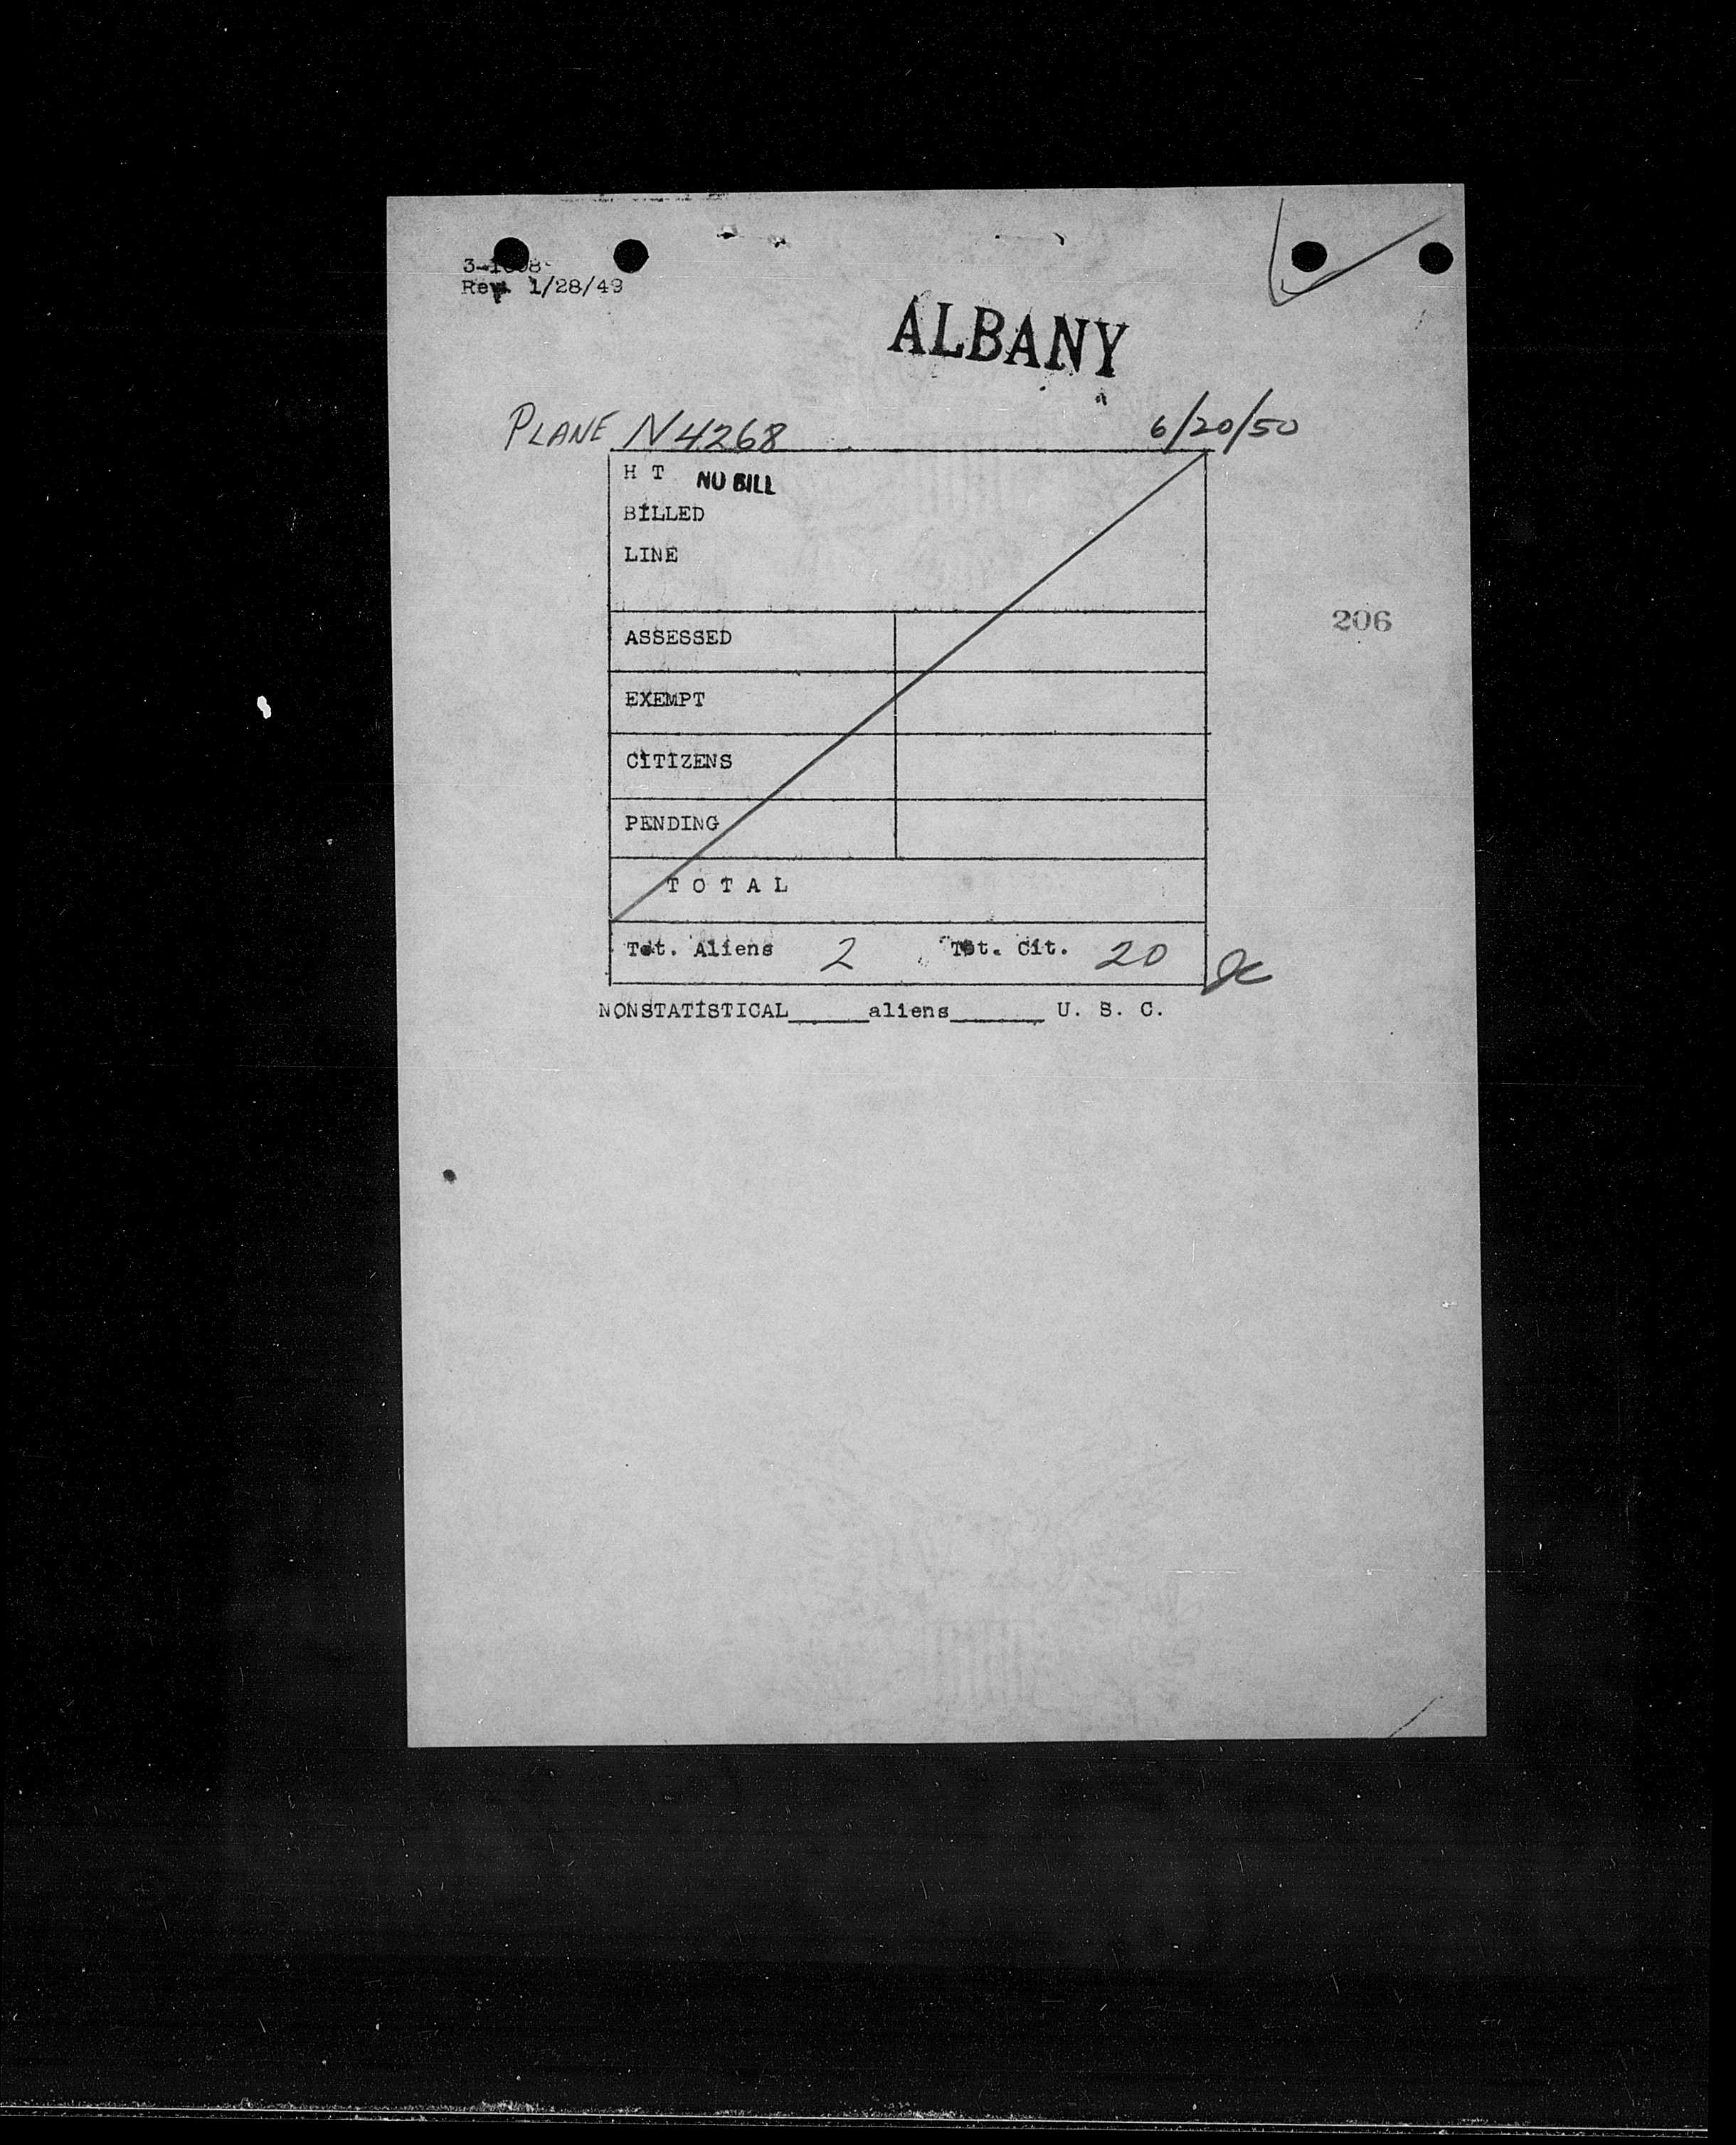 Rev. 1/28/49
ALBANY
PLANE N4268 6/20/50
H T NO BILL
BILLED
LINE
206
ASSESSED
EXEMPT
CITIZENS
PENDING
T O T A L
Tot. Aliens 2 Tot. Cit. 20
NONSTATISTICAL_____aliens______ U. S. C.